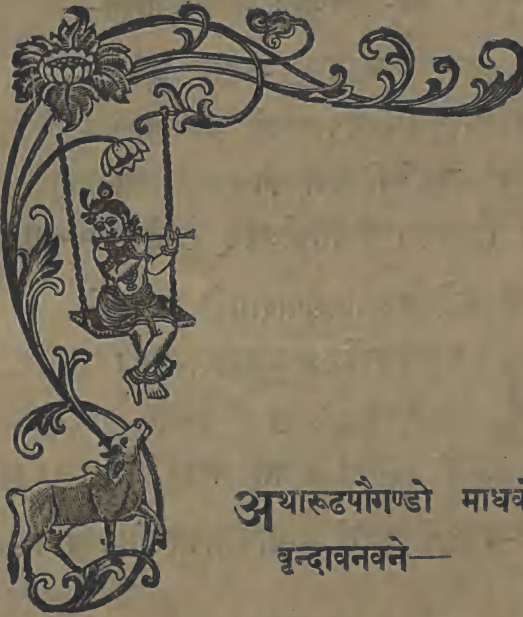 अथारूढपौगण्डो माधवो
वृन्दावनवने—